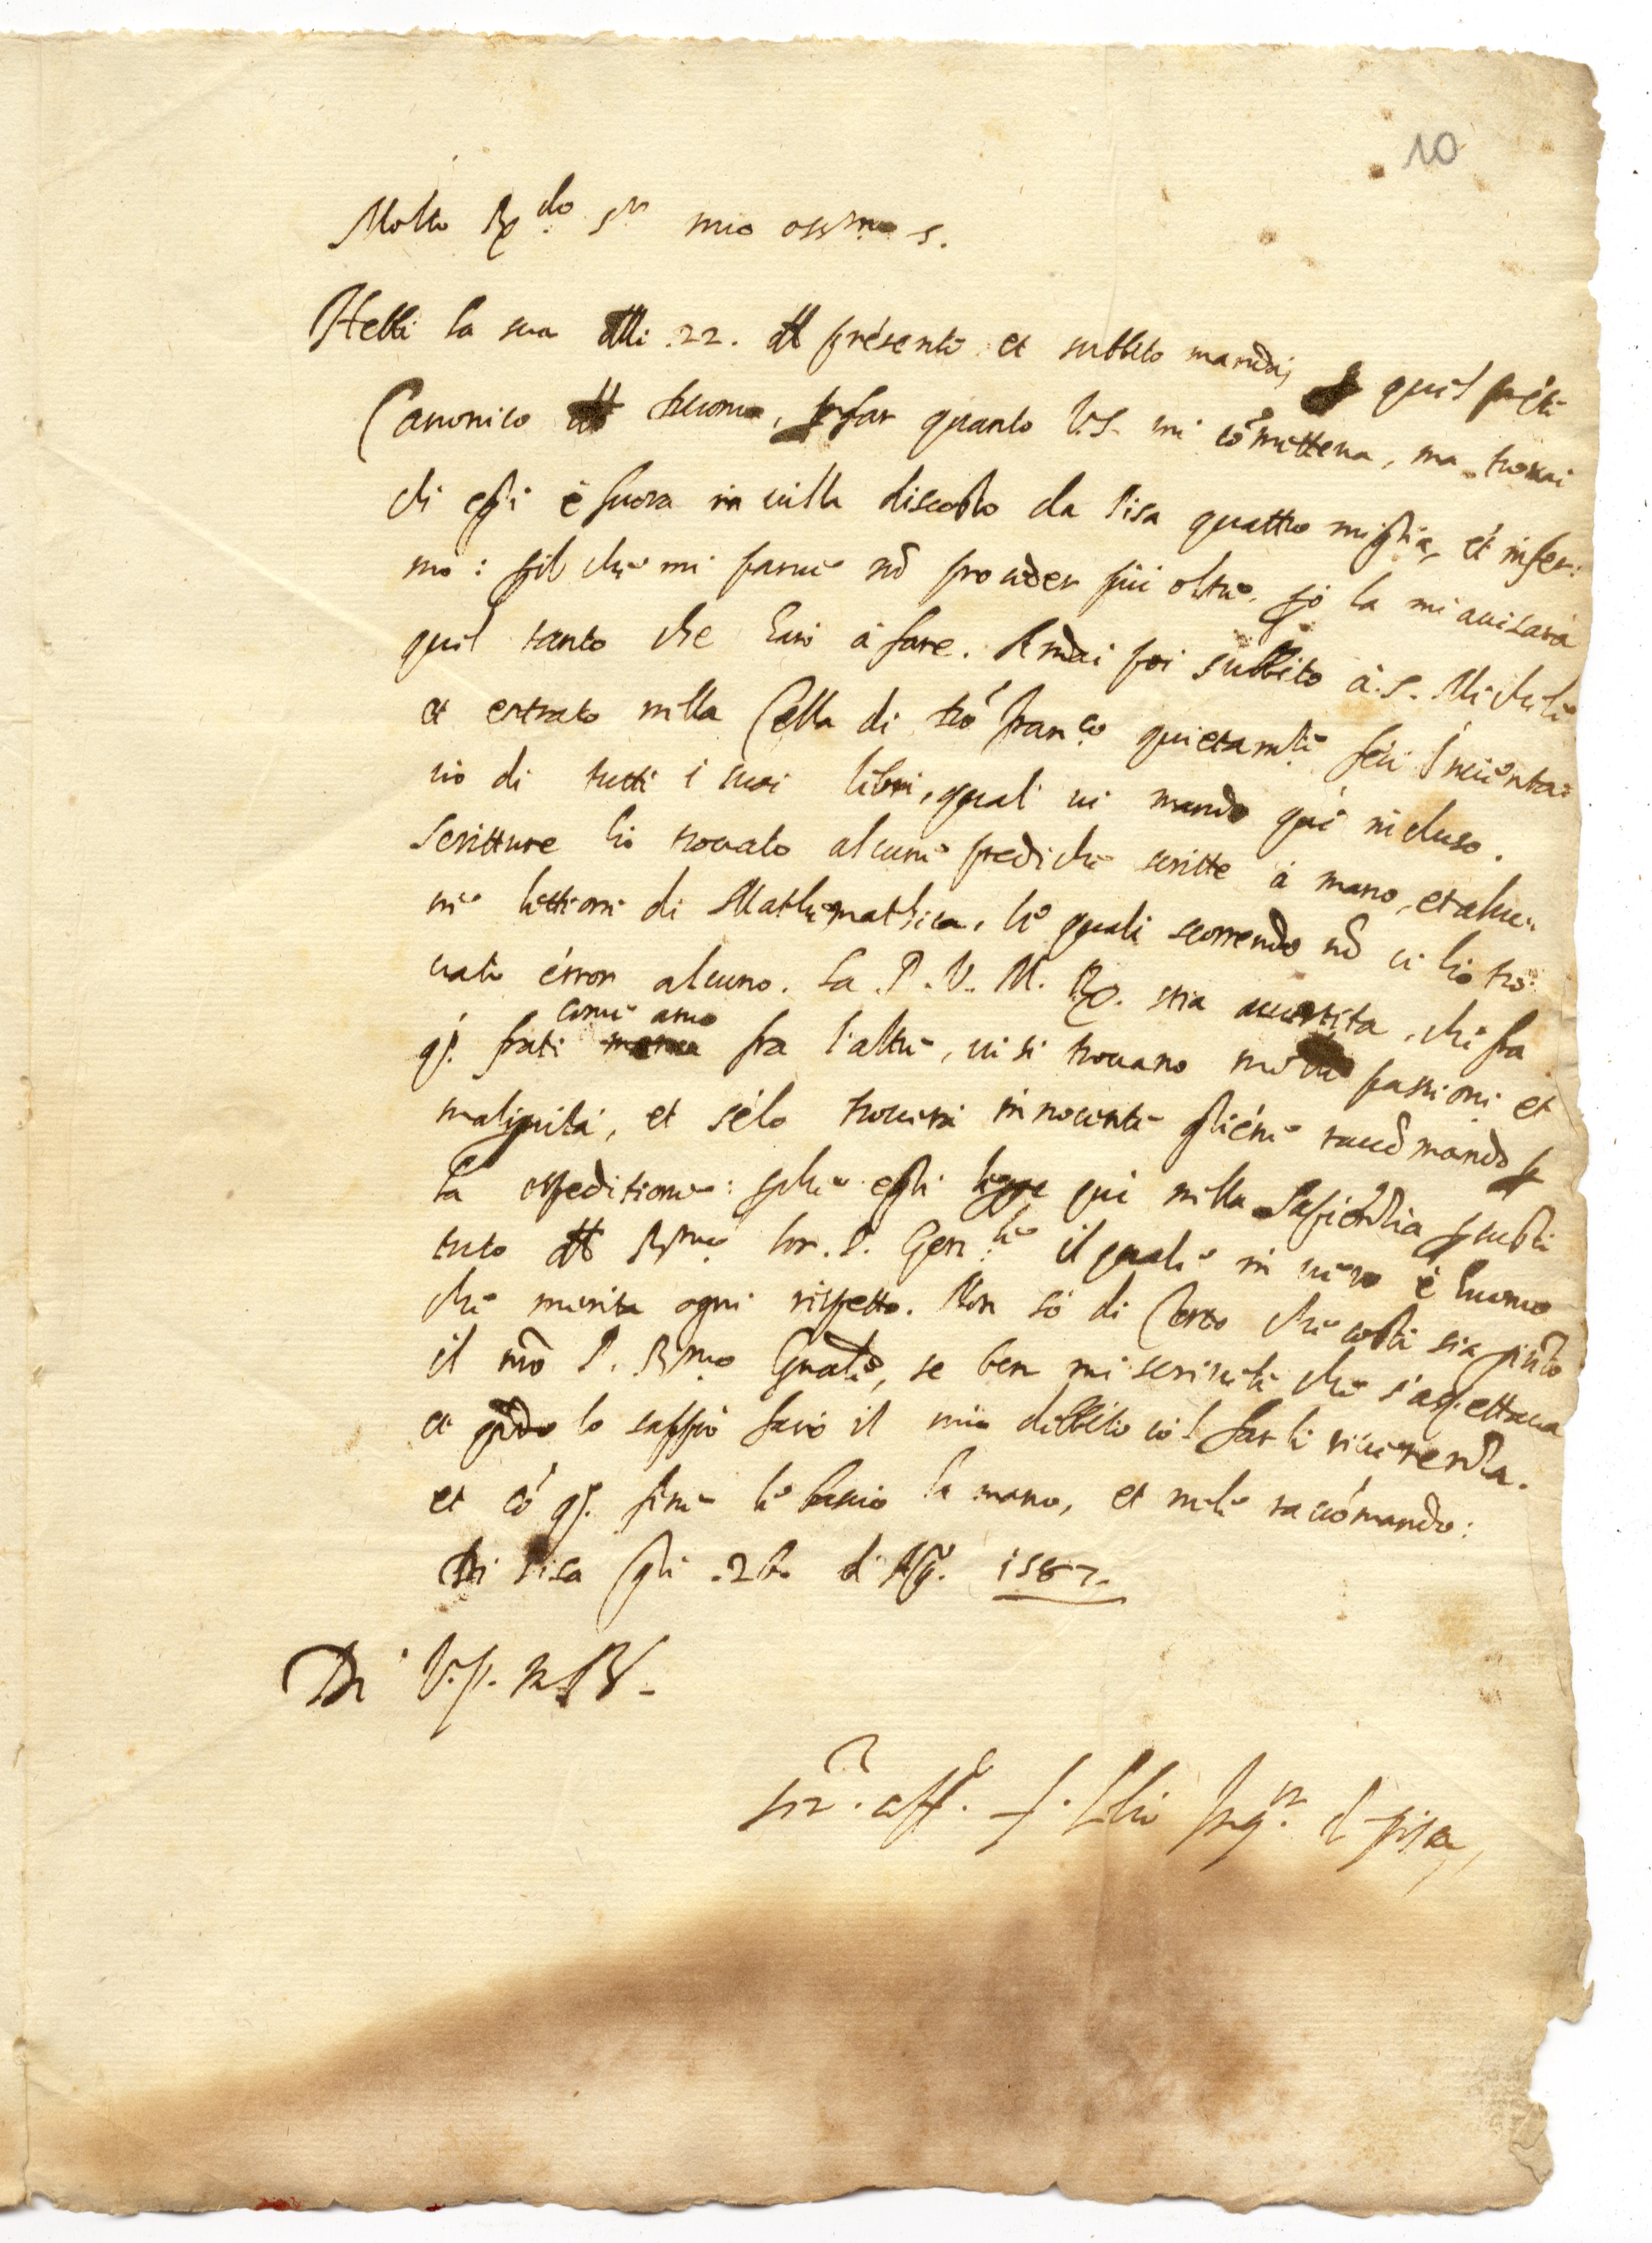 10
Molto Rdo Sr mio ossmo s.
Hebbi la sua delli .22. del presente et subbito mandai p quel prete
Canonico del Duomo, p far quanto V.S. mi cõmitteva, ma trovai
ch egli è fuora in villa discosto da Pisa quattro miglia, et infer:
mo: p il che mi parve nõ proceder più oltre. la mi avisarà
quel tanto che havrò à fare. Andai poi subbito à .S. Michele
et entrato nella Cella di franco quietamte feci Inventa=
rio di tutti i suoi libri, quali vi mando quì incluso.
Scritture hò trovato alcune prediche scritte à mano, et alcu:
ne lettioni di Mathemathica, le quali scorrendo nõ ci hò tro:
vato érror alcuno. La .P.V.M.R. stia avertita, che fra
qs. frati come anco fra l'altri, vi si trovano molte passioni et
malignità, et se lo troverà innocente gliene raccõmando p
la espeditione: pche egli legge quì nella Sapienza
tuto del Rmo hor. P. Genle il quale in vero è huomo
che merita ogni rispetto. Non só di Certo che costì sia giũto
il nrõ P. Rmo Gnale, se ben mi scrivete che s'aspettava
et qñdo lo sappia farò il mio debbito col farli riverenza.
et cõ qs. fine le bascio la mano, et mele raccõmando:
Di Pisa gli .26. d Ag. 1587.
Di V.P. M R.
Ser. aff. f. Inqr d pisa